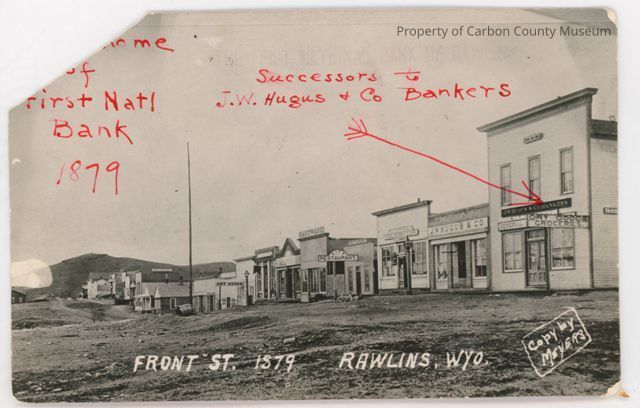 Property of Carbon County Museum
ome
of
First Nat'l
Bank
1879
Successors to
J.W. Hugus & Co Bankers
HARDWARE
RESTAURANT
J.W. HUGUS & CO.
J.W. HUGUS & CO. BANKERS
DRY GOODS
GROCERIES
FRONT ST. 1879 RAWLINS, WYO.
Copy by
MEYERS